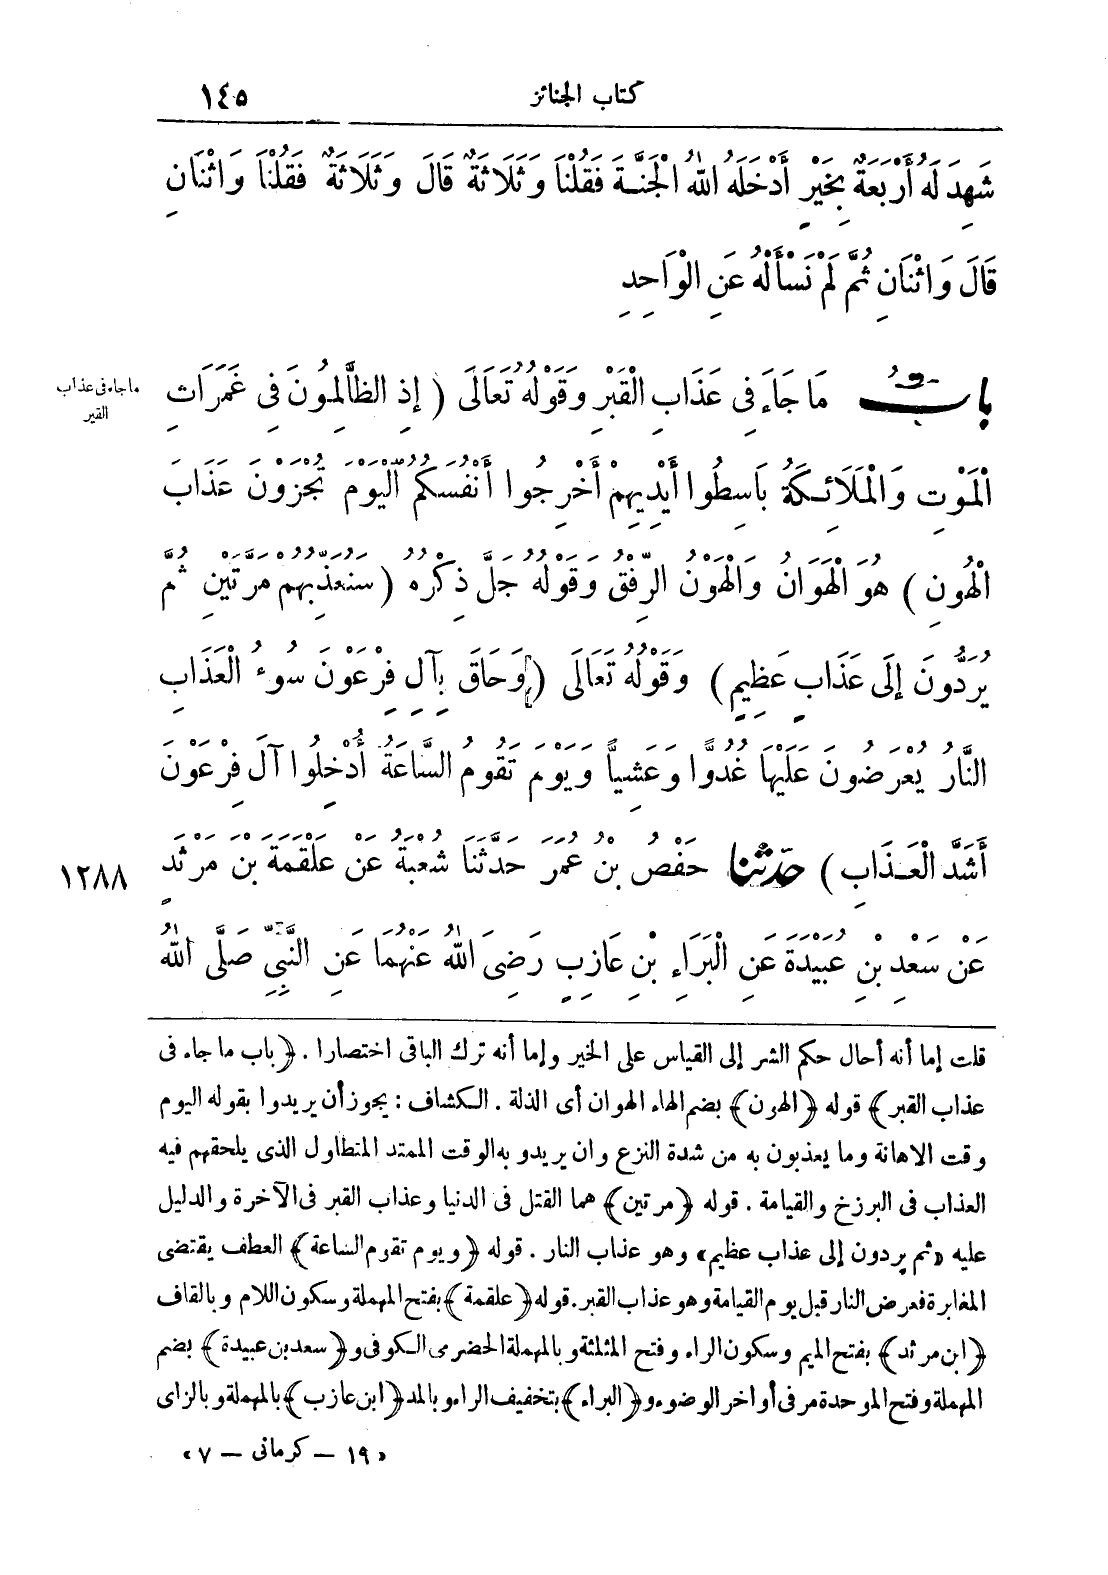 كتاب الجنائز ١٤٥
شَهِدَ لَهُ أَرْبَعَةٌ بِخَيْرٍ أَدْخَلَهُ اللهُ الْجَنَّةَ فَقُلْنَا وَثَلَاثَةٌ قَالَ وَثَلَاثَةٌ فَقُلْنَا وَاثْنَانِ
قَالَ وَاثْنَانِ ثُمَّ لَمْ نَسْأَلْهُ عَنِ الْوَاحِدِ
بابُ مَا جَاءَ فِى عَذَابِ الْقَبْرِ وَقَوْلُهُ تَعَالَى ( إِذِ الظَّالِمُونَ فِى غَمَرَاتِ
ما جاء فى عذاب
القبر
الْمَوْتِ وَالْمَلَائِكَةُ بَاسِطُوا أَيْدِيهِمْ أَخْرِجُوا أَنْفُسَكُمُ الْيَوْمَ تُجْزَوْنَ عَذَابَ
الْهُونِ ) هُوَ الْهَوَانُ وَالْهَوْنُ الرِّفْقُ وَقَوْلُهُ جَلَّ ذِكْرُهُ ( سَنُعَذِّبُهُمْ مَرَّتَيْنِ ثُمَّ
يُرَدُّونَ إِلَى عَذَابٍ عَظِيمٍ ) وَقَوْلُهُ تَعَالَى ( وَحَاقَ بِآلِ فِرْعَوْنَ سُوءُ الْعَذَابِ
النَّارُ يُعْرَضُونَ عَلَيْهَا غُدُوًّا وَعَشِيًّا وَيَوْمَ تَقُومُ السَّاعَةُ أَدْخِلُوا آلَ فِرْعَوْنَ
أَشَدَّ الْعَذَابِ ) حَدَّثَنَا حَفْصُ بْنُ عُمَرَ حَدَّثَنَا شُعْبَةُ عَنْ عَلْقَمَةَ بْنِ مَرْثَدٍ ١٢٨٨
عَنْ سَعْدِ بْنِ عُبَيْدَةَ عَنِ الْبَرَاءِ بْنِ عَازِبٍ رَضِىَ اللهُ عَنْهُمَا عَنِ النَّبِيِّ صَلَّى اللهُ
قلت إما أنه أحال حكم الشر إلى القياس على الخير وإما أنه ترك الباقى اختصارا . ﴿باب ما جاء فى
عذاب القبر﴾ قوله ﴿الهون﴾ بضم الهاء الهوان أى الذلة . الكشاف : يجوز أن يريدوا بقوله اليوم
وقت الاهانة وما يعذبون به من شدة النزع وان يريدو به الوقت الممتد المتطاول الذى يلحقهم فيه
العذاب فى البرزخ والقيامة . قوله ﴿مرتين﴾ هما القتل فى الدنيا وعذاب القبر فى الآخرة والدليل
عليه «ثم يردون إلى عذاب عظيم» وهو عذاب النار . قوله ﴿ويوم تقوم الساعة﴾ العطف يقتضى
المغايرة فعرض النار قبل يوم القيامة وهو عذاب القبر. قوله ﴿علقمة﴾ بفتح المهملة وسكون اللام وبالقاف
﴿ابن مرثد﴾ بفتح الميم وسكون الراء وفتح المثلثة وبالمهملة الحضرمى الكوفى و﴿سعد بن عبيدة﴾ بضم
المهملة وفتح الموحدة مر فى أواخر الوضوء و﴿البراء﴾ بتخفيف الراء وبالمد ﴿ابن عازب﴾ بالمهملة وبالزاى
« ١٩ – كرمانى – ٧ »